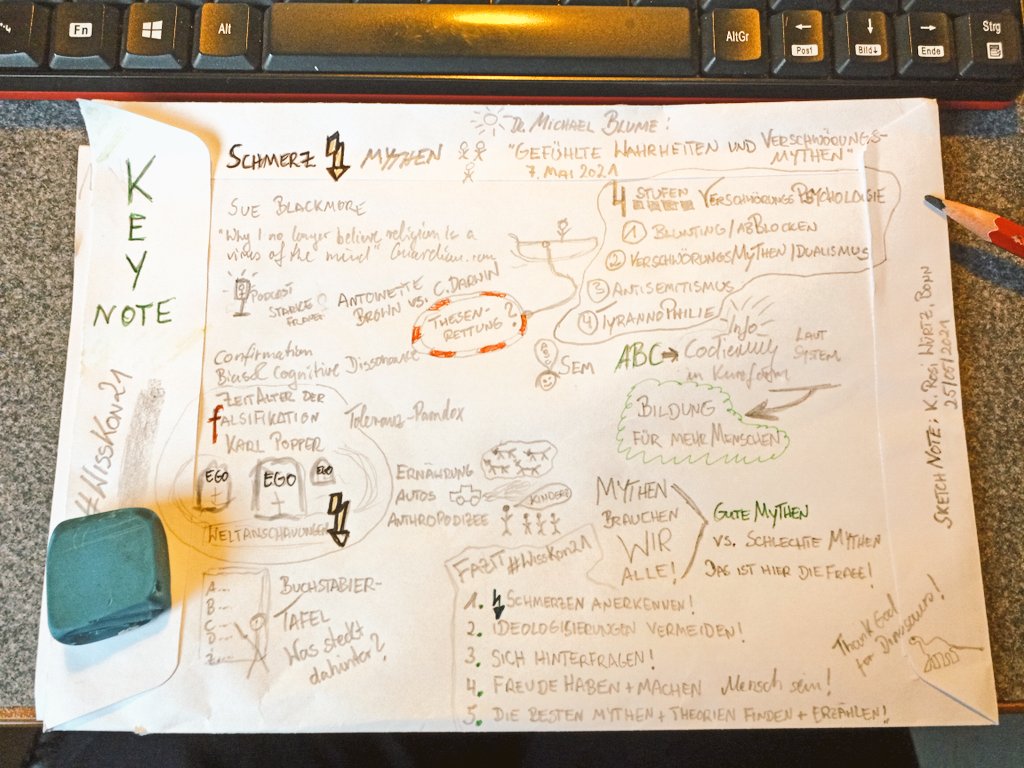 Fn
Alt
AltGr
←
Post
↓
Bild↓
→
Ende
Strg
KEY
NOTE
#WissKon21
SCHMERZ MYTHEN
Dr. MICHAEL BLUME:
"GEFÜHLTE WAHRHEITEN UND VERSCHWÖRUNGS-
MYTHEN"
7. MAI 2021
SUE BLACKMORE
"Why I no longer believe religion is a
virus of the mind" Guardian.com
PODCAST
STARKE
FRAUEN
ANTOINETTE
BROWN VS. C. DARWIN
THESEN-
RETTUNG?
4 STUFEN VERSCHWÖRUNGSPSYCHOLOGIE
1 BLUNTING/ABBLOCKEN
2 VERSCHWÖRUNGSMYTHEN/DUALISMUS
3 ANTISEMITISMUS
4 TYRANNOPHILIE
Confirmation
Bias & Cognitive Dissonance
SEM
ABC → Info-
Codierung
in Kurzform
LAUT
SYSTEM
BILDUNG
FÜR MEHR MENSCHEN
ZEITALTER DER
fALSIFIKATION
KARL POPPER
Toleranz-Paradox
EGO
EGO
EGO
WELTANSCHAUUNGEN
ERNÄHRUNG
AUTOS
KINDER?
ANTHROPODIZEE
MYTHEN
BRAUCHEN
WIR
ALLE!
GUTE MYTHEN
VS. SCHLECHTE MYTHEN
DAS IST HIER DIE FRAGE!
A...
B...
C...
D...
Z...
BUCHSTABIER-
TAFEL
Was steckt
dahinter?
FAZIT #WissKon21
1. SCHMERZEN ANERKENNEN!
2. IDEOLOGISIERUNGEN VERMEIDEN!
3. SICH HINTERFRAGEN!
4. FREUDE HABEN + MACHEN Mensch sein!
5. DIE BESTEN MYTHEN + THEORIEN FINDEN + ERZÄHLEN!
Thank God
for Dinosaurs!
SKETCH NOTE: K. Rosi Würtz, Bonn
25/05/2021